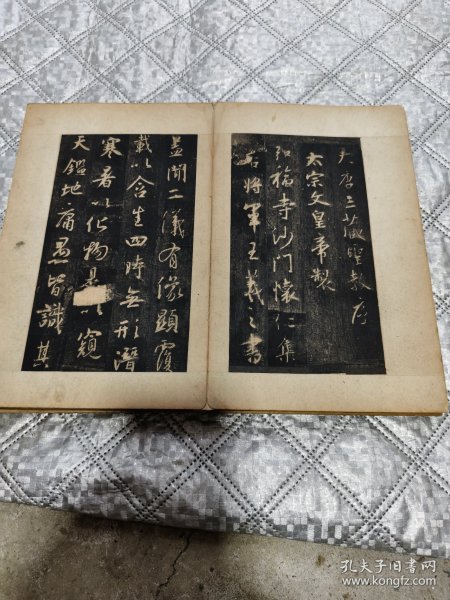 大唐三藏聖教序
太宗文皇帝製
弘福寺沙門懷仁集
右將軍王羲之書
蓋聞二儀有像顯覆
載以含生四時無形潛
寒暑以化物是以窺
天鑑地庸愚皆識其
孔夫子旧书网
www.kongfz.com